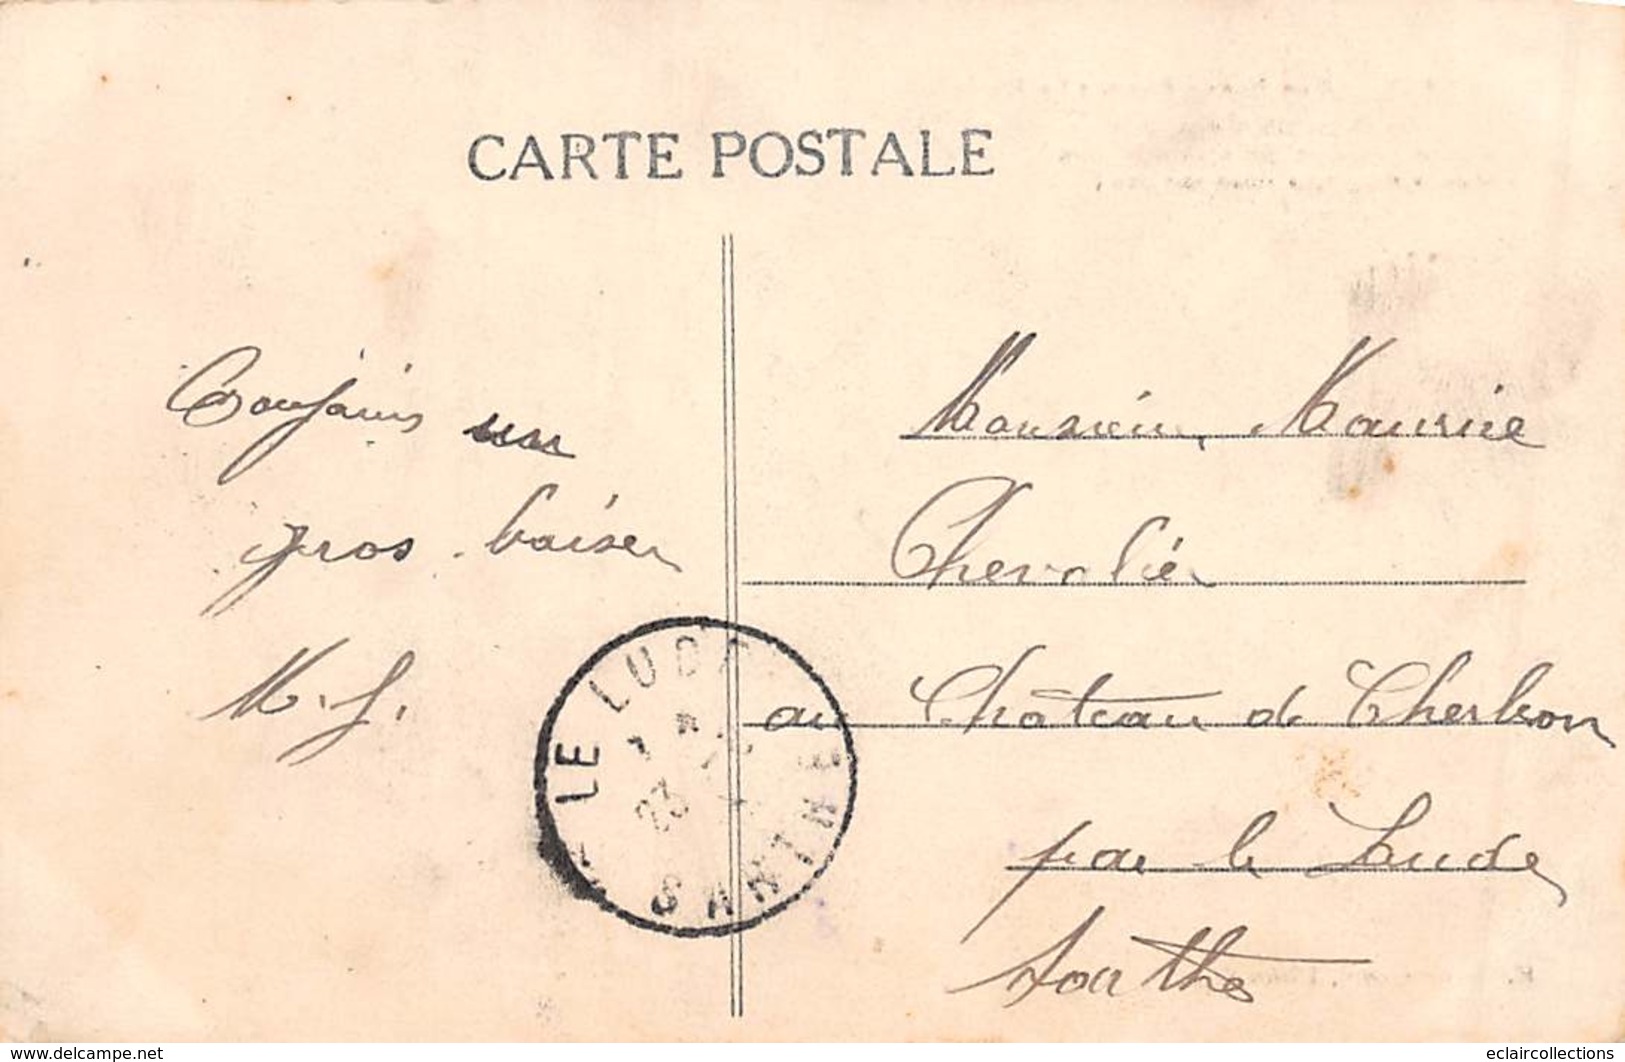 CARTE POSTALE
Toujours un
gros baiser
M. J.
Monsieur Maurice
Chevalier
au Château de Cherbon
par le Lude
Sarthe
LE LUDE
23
SARTHE
www.delcampe.net
eclaircollections